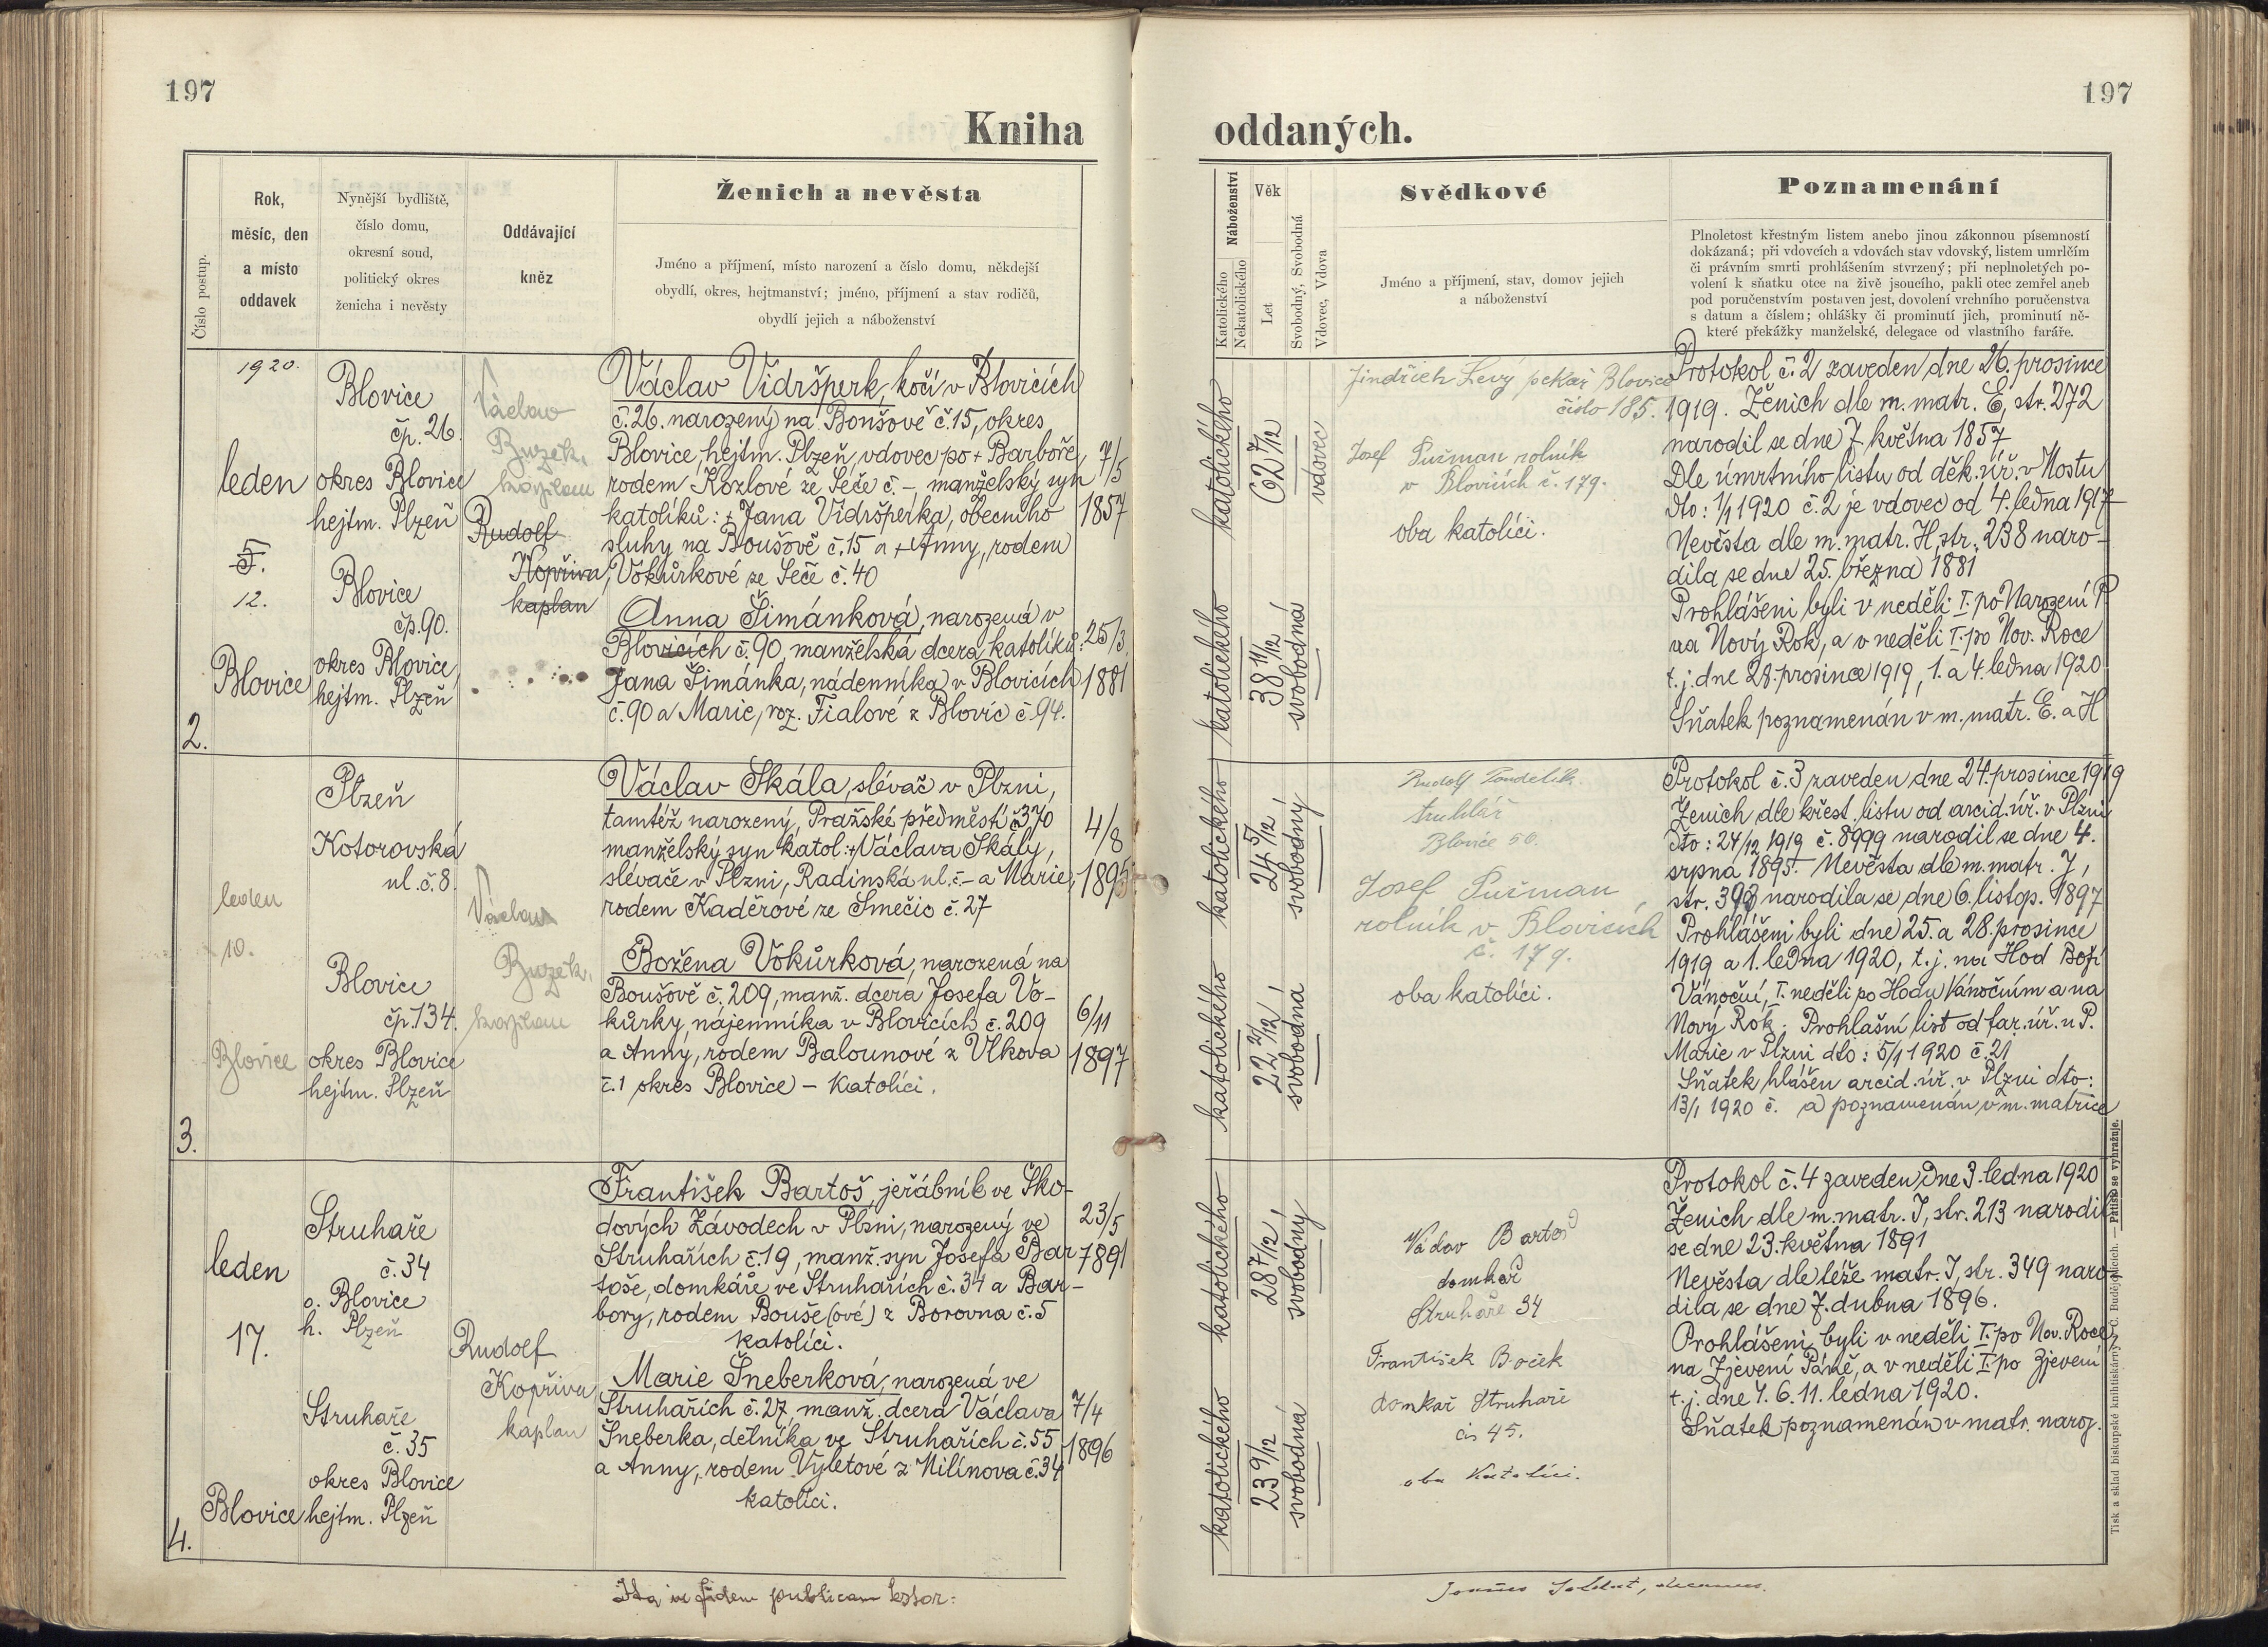 197
197
Kniha oddaných.
Číslo postup.
Rok,
měsíc, den
a místo
oddavek
Nynější bydliště,
číslo domu,
okresní soud,
politický okres
ženicha i nevěsty
Oddávající
kněz
Ženich a nevěsta
Jméno a příjmení, místo narození a číslo domu, někdejší
obydlí, okres, hejtmanství; jméno, příjmení a stav rodičů,
obydlí jejich a náboženství
Náboženství
Katolického
Nekatolického
Věk
Let
Svobodný, Svobodná
Vdovec, Vdova
Svědkové
Jméno a příjmení, stav, domov jejich
a náboženství
Poznamenání
Plnoletost křestným listem anebo jinou zákonnou písemností
dokázaná; při vdovcích a vdovách stav vdovský, listem umrlčím
či právním smrti prohlášením stvrzený; při neplnoletých po-
volení k sňatku otce na živě jsoucího, pakli otec zemřel aneb
pod poručenstvím postaven jest, dovolení vrchního poručenstva
s datum a číslem; ohlášky či prominutí jich, prominutí ně-
které překážky manželské, delegace od vlastního faráře.
2.
1920.
leden
5.
12.
Blovice
Blovice
čp. 26.
okres Blovice
hejtm. Plzeň
Blovice
čp. 90.
okres Blovice,
hejtm. Plzeň
Václav
Buzek,
kaplan
Rudolf
Kopřiva,
kaplan
Václav Vidršperk, kočí v Blovicích
č. 26. narozený na Boušově č. 15, okres
Blovice, hejtm. Plzeň, vdovec po + Barboře,
rodem Kozlové ze Seče č. – manželský syn
katolíků: + Jana Vidršperka, obecního
sluhy na Boušově č. 15 a + Anny, rodem
Vokůrkové ze Seče č. 40
7/5
1857
Anna Šimánková, narozená v
Blovicích č. 90, manželská dcera katolíků:
Jana Šimánka, nádenníka v Blovicích
č. 90 a Marie, roz. Fialové z Blovic č. 94.
25/3.
1881
katolického
62 7/12
vdovec
katolického
38 11/12
svobodná
Jindřich Levý pekař Blovice
číslo 185.
Josef Sušman rolník
v Blovicích č. 179.
oba katolíci.
Protokol č. 2 zaveden dne 26. prosince
1919. Ženich dle m. matr. E, str. 272
narodil se dne 7. května 1857
Dle úmrtního listu od děk. úř. v Mostu
dto: 1/1 1920 č. 2 je vdovec od 4. ledna 1917
Nevěsta dle m. matr. H, str. 238 naro-
dila se dne 25. března 1881
Prohlášeni byli v neděli I. po Narození P.
na Nový Rok, a v neděli I. po Nov. Roce
t. j. dne 28. prosince 1919, 1. a 4. ledna 1920
Sňatek poznamenán v m. matr. E. a H
3.
leden
10.
Blovice
Plzeň
Kotorovská
ul. č. 8.
Blovice
čp. 134.
okres Blovice
hejtm. Plzeň
Václav
Buzek,
kaplan
Václav Skála, slévač v Plzni,
tamtéž narozený, Pražské předměstí č. 370
manželský syn katol: + Václava Skály,
slévače v Plzni, Radinská ul. č. – a Marie,
rodem Kaděrové ze Smečic č. 27
4/8
1895
Božena Vokůrková, narozená na
Boušově č. 209, manž. dcera Josefa Vo-
kůrky, nájemníka v Blovicích č. 209
a Anny, rodem Balounové z Vlkova
č. 1 okres Blovice – Katolíci.
6/11
1897
katolického
24 5/12
svobodný
katolického
22 2/12
svobodná
Rudolf
truhlář
Blovice 50.
Josef Sušman
rolník v Blovicích
č. 179.
oba katolíci.
Protokol č. 3 zaveden dne 24. prosince 1919
Ženich dle křest. listu od arcid. úř. v Plzni
dto: 24/12 1919 č. 8999 narodil se dne 4.
srpna 1895. Nevěsta dle m. matr. J,
str. 393 narodila se dne 6. listop. 1897
Prohlášeni byli dne 25. a 28. prosince
1919 a 1. ledna 1920, t. j. na Hod Boží
Vánoční, I. neděli po Hodu Vánočním a na
Nový Rok. Prohlašní list od far. úř. u P.
Marie v Plzni dto: 5/1 1920 č. 21
Sňatek hlášen arcid. úř. v Plzni dto:
13/1 1920 č. a poznamenán v m. matrice
4.
leden
17.
Blovice
Struhaře
č. 34
o. Blovice
h. Plzeň
Struhaře
č. 35
okres Blovice
hejtm. Plzeň
Rudolf
Kopřiva
kaplan
František Bartoš, jeřábník ve Ško-
dových Závodech v Plzni, narozený ve
Struhařích č. 19, manž. syn Josefa Bar
toše, domkáře ve Struhařích č. 34 a Bar-
bory, rodem Bouše(ové) z Borovna č. 5
katolíci.
23/5
1891
Marie Šneberková, narozená ve
Struhařích č. 27, manž. dcera Václava
Šneberka, dělníka ve Struhařích č. 55
a Anny, rodem Výletové z Milínova č. 34
katolíci.
7/4
1896
katolického
28 7/12
svobodný
katolického
23 9/12
svobodná
Václav Bartoš
domkář
Struhaře 34
František Boček
domkař Struhaře
čís 45.
oba Katolíci.
Protokol č. 4 zaveden dne 3. ledna 1920
Ženich dle m. matr. J, str. 213 narodil
se dne 23. května 1891
Nevěsta dle téže matr. J, str. 349 naro
dila se dne 7. dubna 1896.
Prohlášeni byli v neděli I. po Nov. Roce,
na Zjevení Páně, a v neděli I. po Zjevení
t. j. dne 4. 6. 11. ledna 1920.
Sňatek poznamenán v matr. naroz.
Ita in fidem publicam testor:
Tisk a sklad biskupské knihtiskárny v Č. Budějovicích. — Pátisk se vyhražuje.